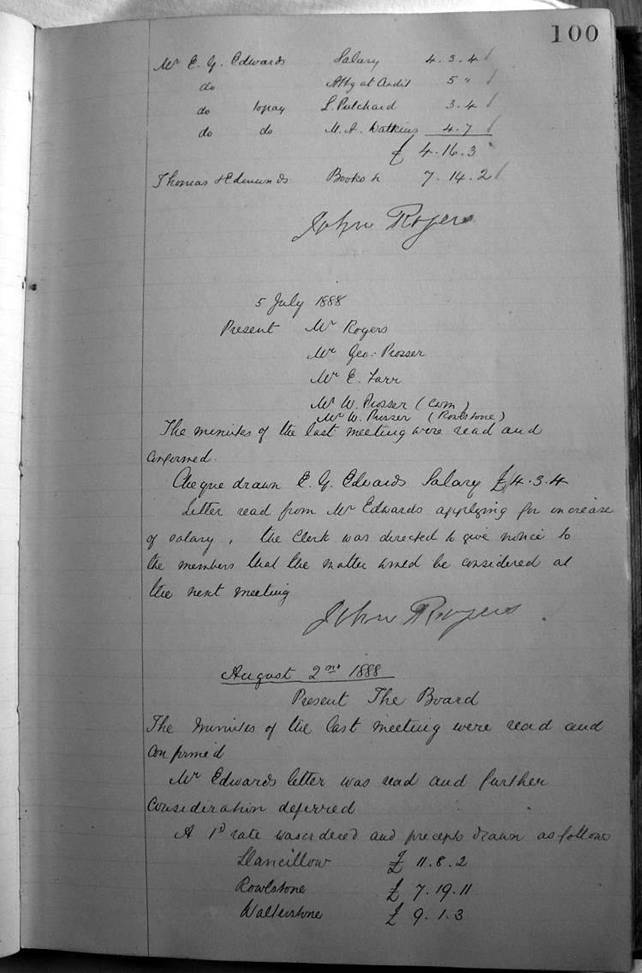 100
Mr E. G. Edwards Salary 4. 3. 4
do Attg at Audit 5 "
do to pay L. Pritchard 3. 4
do do M. A. Watkins 4. 7
£ 4. 16. 3
Thomas & Edmunds Books &c 7. 14. 2
John Rogers
5 July 1888
Present Mr Rogers
Mr Geo: Prosser
Mr E. Farr
Mr W. Prosser (Cwm)
Mr W. Prosser (Rowlstone)
The minutes of the last meeting were read and
confirmed.
Cheque drawn E. G. Edwards Salary £4. 3. 4
Letter read from Mr Edwards applying for increase
of salary, the Clerk was directed to give notice to
the members that the matter would be considered at
the next meeting
John Rogers
August 2nd 1888
Present The Board
The minutes of the last meeting were read and
confirmed
Mr Edwards letter was read and further
consideration deferred
A 1d rate was ordered and precepts drawn as follows
Llancillow £ 11. 8. 2
Rowlstone £ 7. 19. 11
Walterstone £ 9. 1. 3